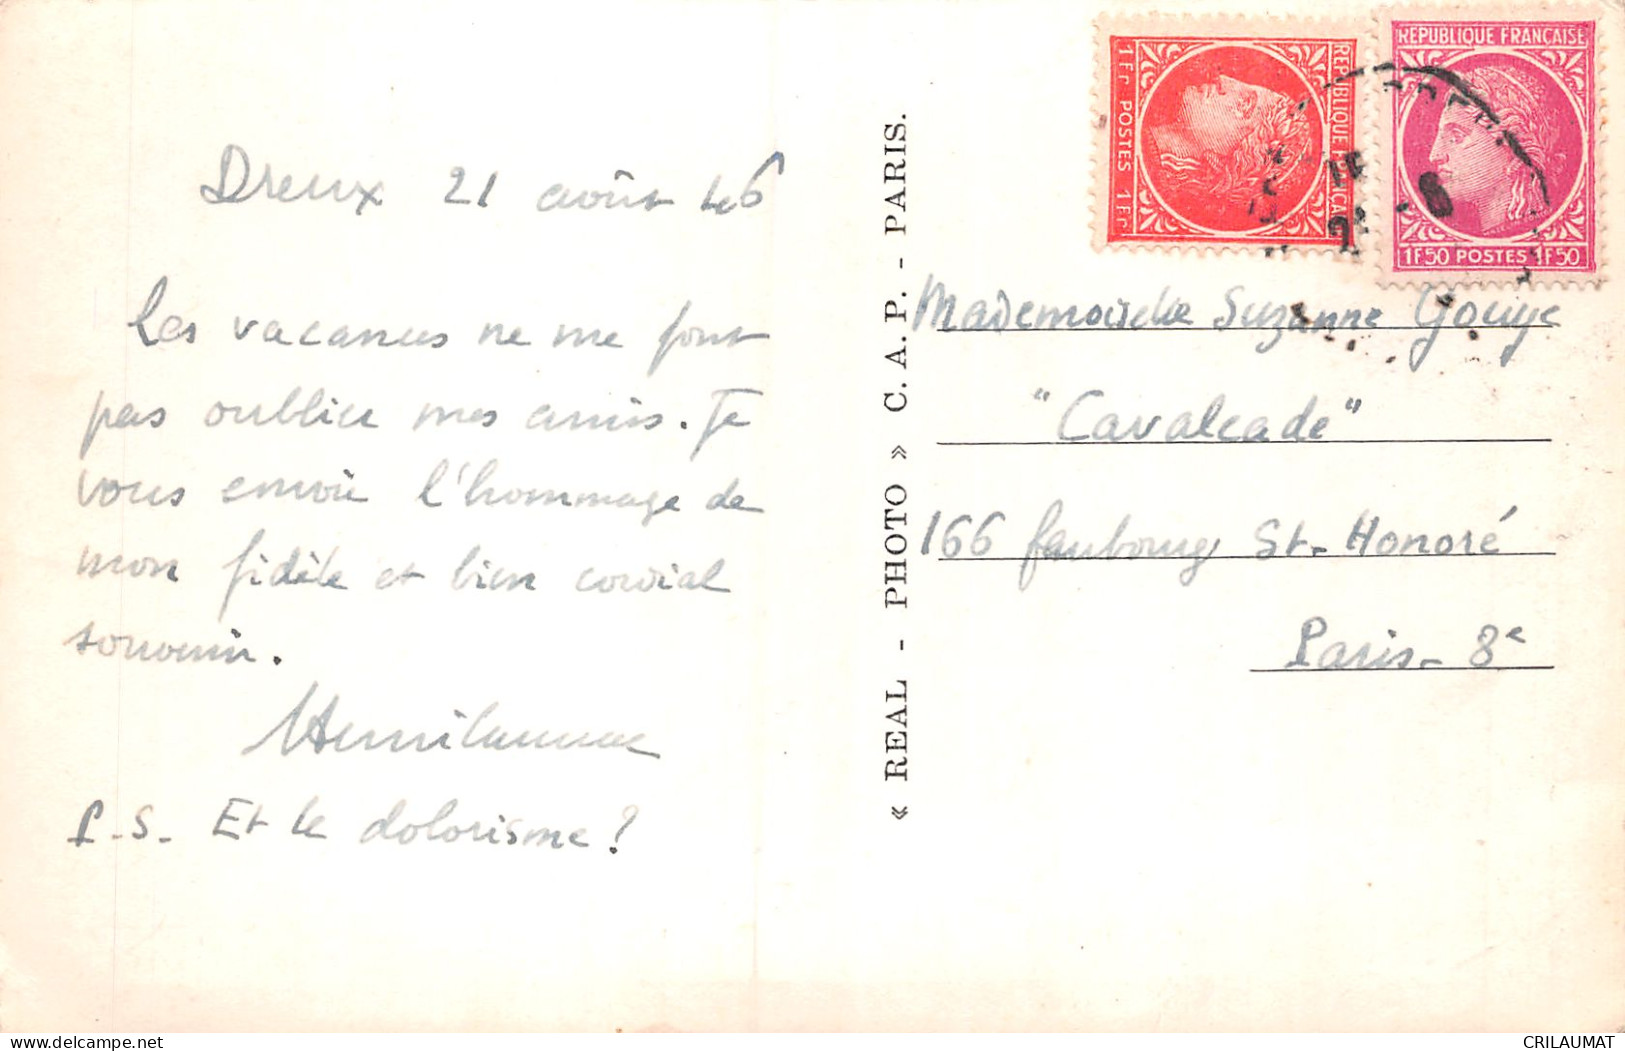 Dreux 21 août 46
Les vacances ne me font
pas oublier mes amis. Je
vous envoie l'hommage de
mon fidèle et bien cordial
souvenir.
P.S. Et le dolorisme ?
« REAL - PHOTO » C. A. P. - PARIS.
RÉPUBLIQUE FRANÇAISE
1Fr POSTES 1Fr
RÉPUBLIQUE FRANÇAISE
1F50 POSTES 1F50
Mademoiselle Suzanne Gouye
"Cavalcade"
166 faubourg St-Honoré
Paris-8e
CRILAUMAT